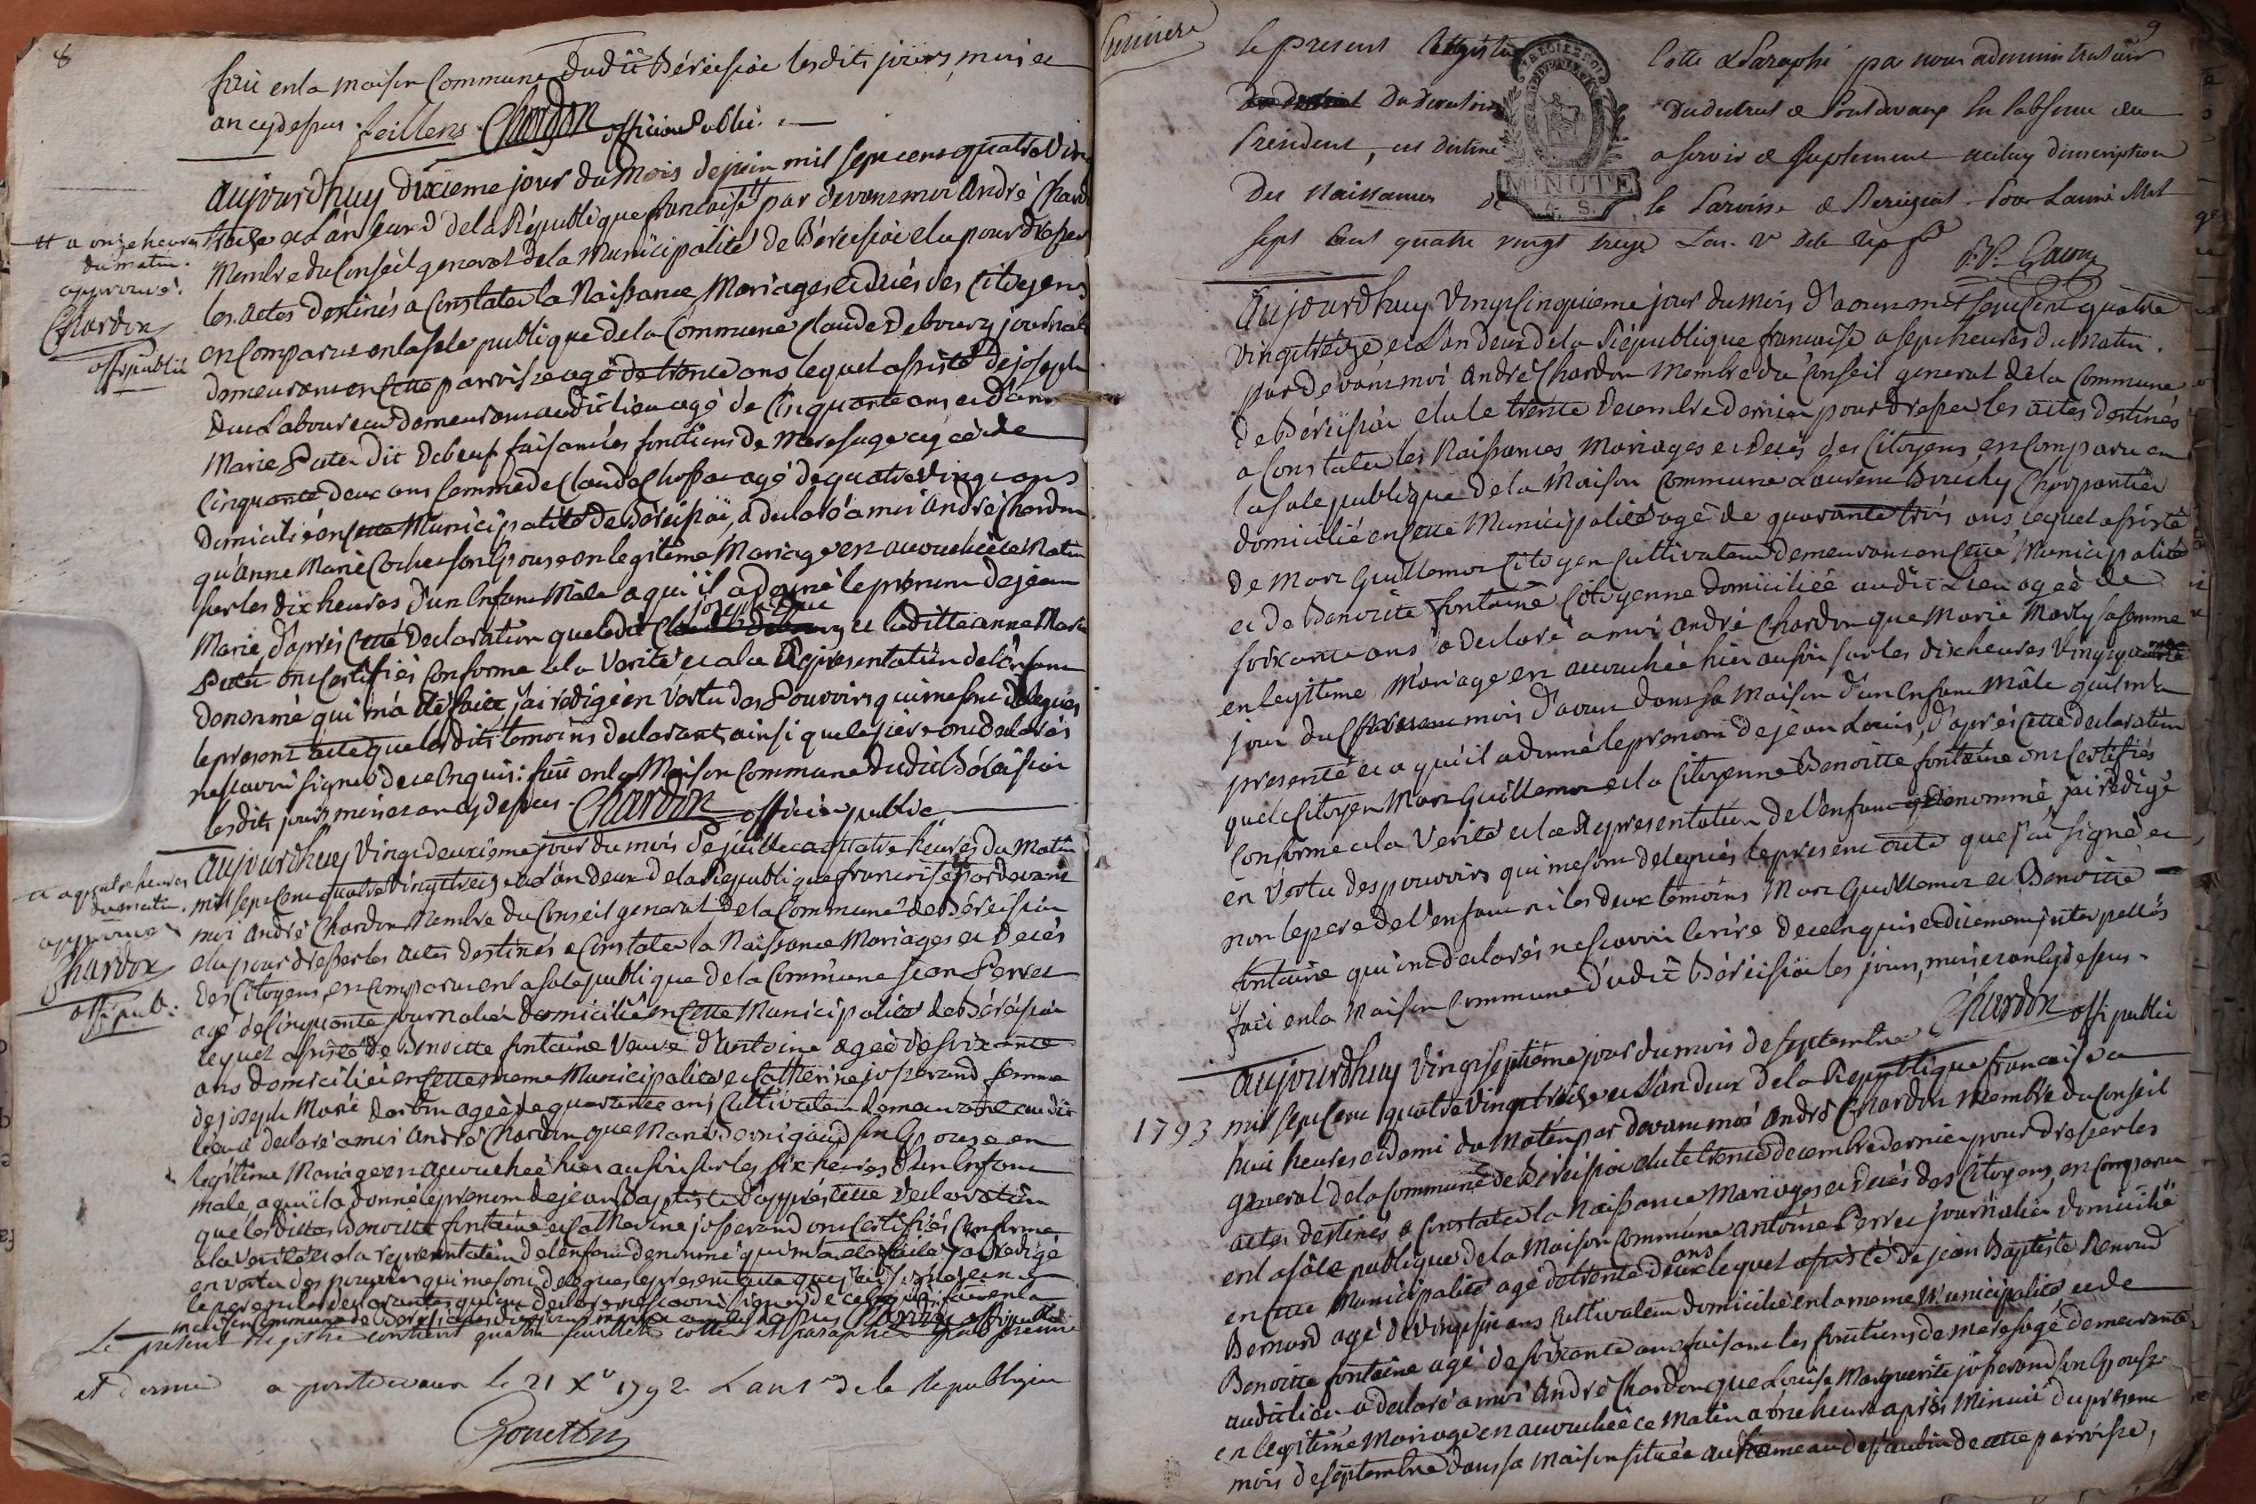 8
fait en la maison Commune dudit Béreisiat lesdits jours, mois et
an cy dessus. feillens Chardon officier Public.
aujourdhuy dixieme jour du mois de juin mil sept cent quatre vin
treize et L'an second de la République française par devant moi André Chard
Membre du Conseil general de la Municipalité de Béreisiat elu pour dresser
les actes destinés a Constater la Naissance, Mariages et décés des Citoyens
en Comparu en la sale publique de la Commune Claude Debourg journal
demeurant en Cette parroisse agé de trente ans lequel assisté de joseph
Duc Laboureur demeurant audit lieu agé de Cinquante ans et d'anne
Marie Puter dit Debeuf faisant les fonctions de Meresage agée de
Cinquante deux ans femme de Claude Chossat agé de quatre vingt ans
domicilié en Cette Municipalité de Béreisiat, a declaré a moi André Chardon
qu'anne Marie Cocher son Epouse en legitime Mariage est accouchée ce Matin
sur les dix heures d'un Enfant Mâle a qui il a donné le prénom de jean
joseph Duc
Marie, d'aprés Cette declaration que ledit et laditte anne Marie
Puter ont Certifiés Conforme a la Verité et a la Représentation de l'enfant
denommé qui m'a été faite j'ai rédigé en Vertu des Pouvoirs qui me sont delegués
le present acte que lesdits temoins declarants, ainsi que le pére ont declarés
ne scavoir signer de ce Enquis: fait en la Maison Commune dudit Béréisiat
lesdits jours mois et an cy dessus. Chardon officier public
et a onze heures
du matin.
approuvé.
Chardon
off. public
aujourdhuy Vingt deuxieme jour du mois de juillet a quatre heures du Matin
mil sept Cent quatre vingt treize et L'an deux de la République francaise par devant
moi André Chardon Membre du Conseil general de la Commune de Béréisiat
elu pour dresser les actes destinés a Constater la Naissance Mariages et Décés
des Citoyens, en Comparu en la sale publique de la Commune jean Perret
agé de Cinquante journalier domicilié en Cette Municipalité de Béréisiat
lequel assisté de Benoitte fontaine Veuve d'antoine agée de soixante
ans domiciliée en Cette meme Municipalité et Catherine josserand femme
de joseph Marie agée de quarante ans Cultivateur demeurant audit
lieu a declaré a moi André Chardon que Marie son Epouse en
legitime Mariage est accouchée hier au soir sur les six heures d'un Enfant
male, a qui il a donné le prenom de jean Baptiste d'apprés Cette declaration
que lesdittes Benoitte fontaine et Catherine josserand ont Certifiés Conforme
a la Verité et a la representation de l'enfant denommé qui m'a eté faite j'ai redigé
en vertu des pouvoirs qui me sont delegués le present acte que j'ai signé et non
le pere ni les declarantes qui ont declaré ne scavoir signer de ce fait en la
maison Commune de Béréisiat les jours, mois et an cy dessus Chardon off. public
et a quatre heures
du matin.
approuvé
Chardon
off. pub.
Le present registre contient quatre feuillets cottes et paraphes par premier
et dernier a pontdevaux le 21 Xre 1792 L an 1er de la Republique
Gouetton
9
le present Registre Cotté & Paraphé par nous administrateur
du directoire du district de Pontdevaux en l'absence du
President, est destiné a servir de suplement a celuy d'inscription
des Naissances de la Paroisse de Bereiziat. Pour L'année Mil
sept Cent quatre vingt treize L'an. 2e de la Rép. fse
aujourdhuy Vingt Cinquieme jour du mois d'aoust mil sept Cent quatre
vingt treize, et L'an deux de la République francaise a sept heures du matin.
par devant moi André Chardon Membre du Conseil general de la Commune
de Béréisiat elu le trente decembre dernier pour dresser les actes destinés
a Constater les Naissances Mariages et Décés des Citoyens, en Comparu en
la sale publique de la Maison Commune Laurent Charpantier
domicilié en Cette Municipalité agé de quarante trois ans lequel assisté
de Marc Guillemot Citoyen Cultivateur demeurant en Cette Municipalité
et de Benoitte fontaine Citoyenne domiciliée audit Lieu agée de
soixante ans a declaré a moi André Chardon que Marie Marly sa femme
en legitime Mariage est accouchée hier au soir sur les dix heures Vingt quatre
jour du Courant mois d'aoust dans sa Maison d'un Enfant Mâle qu'il m'a
presenté et a qui il a donné le prenom de jean Louis, d'aprés Cette declaration
que le Citoyen Marc Guillemot et la Citoyenne Benoitte fontaine ont Certifiés
Conforme a la Verité et a la Representation de l'enfant denommé, j'ai rédigé
en Vertu des pouvoirs qui me sont delegués le present acte que j'ai signé et
non le pere de l'enfant ni les deux temoins Marc Guillemot et Benoitte
fontaine qui ont declarés ne scavoir Ecrire de ce Enquis et ducment interpellés
fait en la Maison Commune dudit Béréisiat les jours, mois et an cy dessus.
Chardon off. public
aujourdhuy Vingt septieme jour du mois de septembre
1793
mil sept Cent quatre Vingt treize et L'an deux de la République francaise a
huit heures et demi du Matin par devant moi André Chardon Membre du Conseil
general de la Commune de Béréisiat elu le trente decembre dernier pour dresser les
actes destinés a Constater la Naissance Mariages et Décés des Citoyens, en Comparu
en la sâle publique de la Maison Commune Antoine Perret journalier domicilié
en Cette Municipalité agé de trente deux ans lequel assisté de jean Baptiste Renoud
Bernard agé de Vingt six ans Cultivateur domicilié en la meme Municipalité et de
Benoitte fontaine agé de soixante ans faisant les fonctions de Meresage demeurante
audit lieu a declaré a moi André Chardon que Louise Marguerite josserand son Epouse
en legitime Mariage est accouchée ce Matin a une heure aprés Minuit du présent
mois de septembre dans sa Maison située au hameau de st aubin de cette parroisse,
MINUTE
4. S.